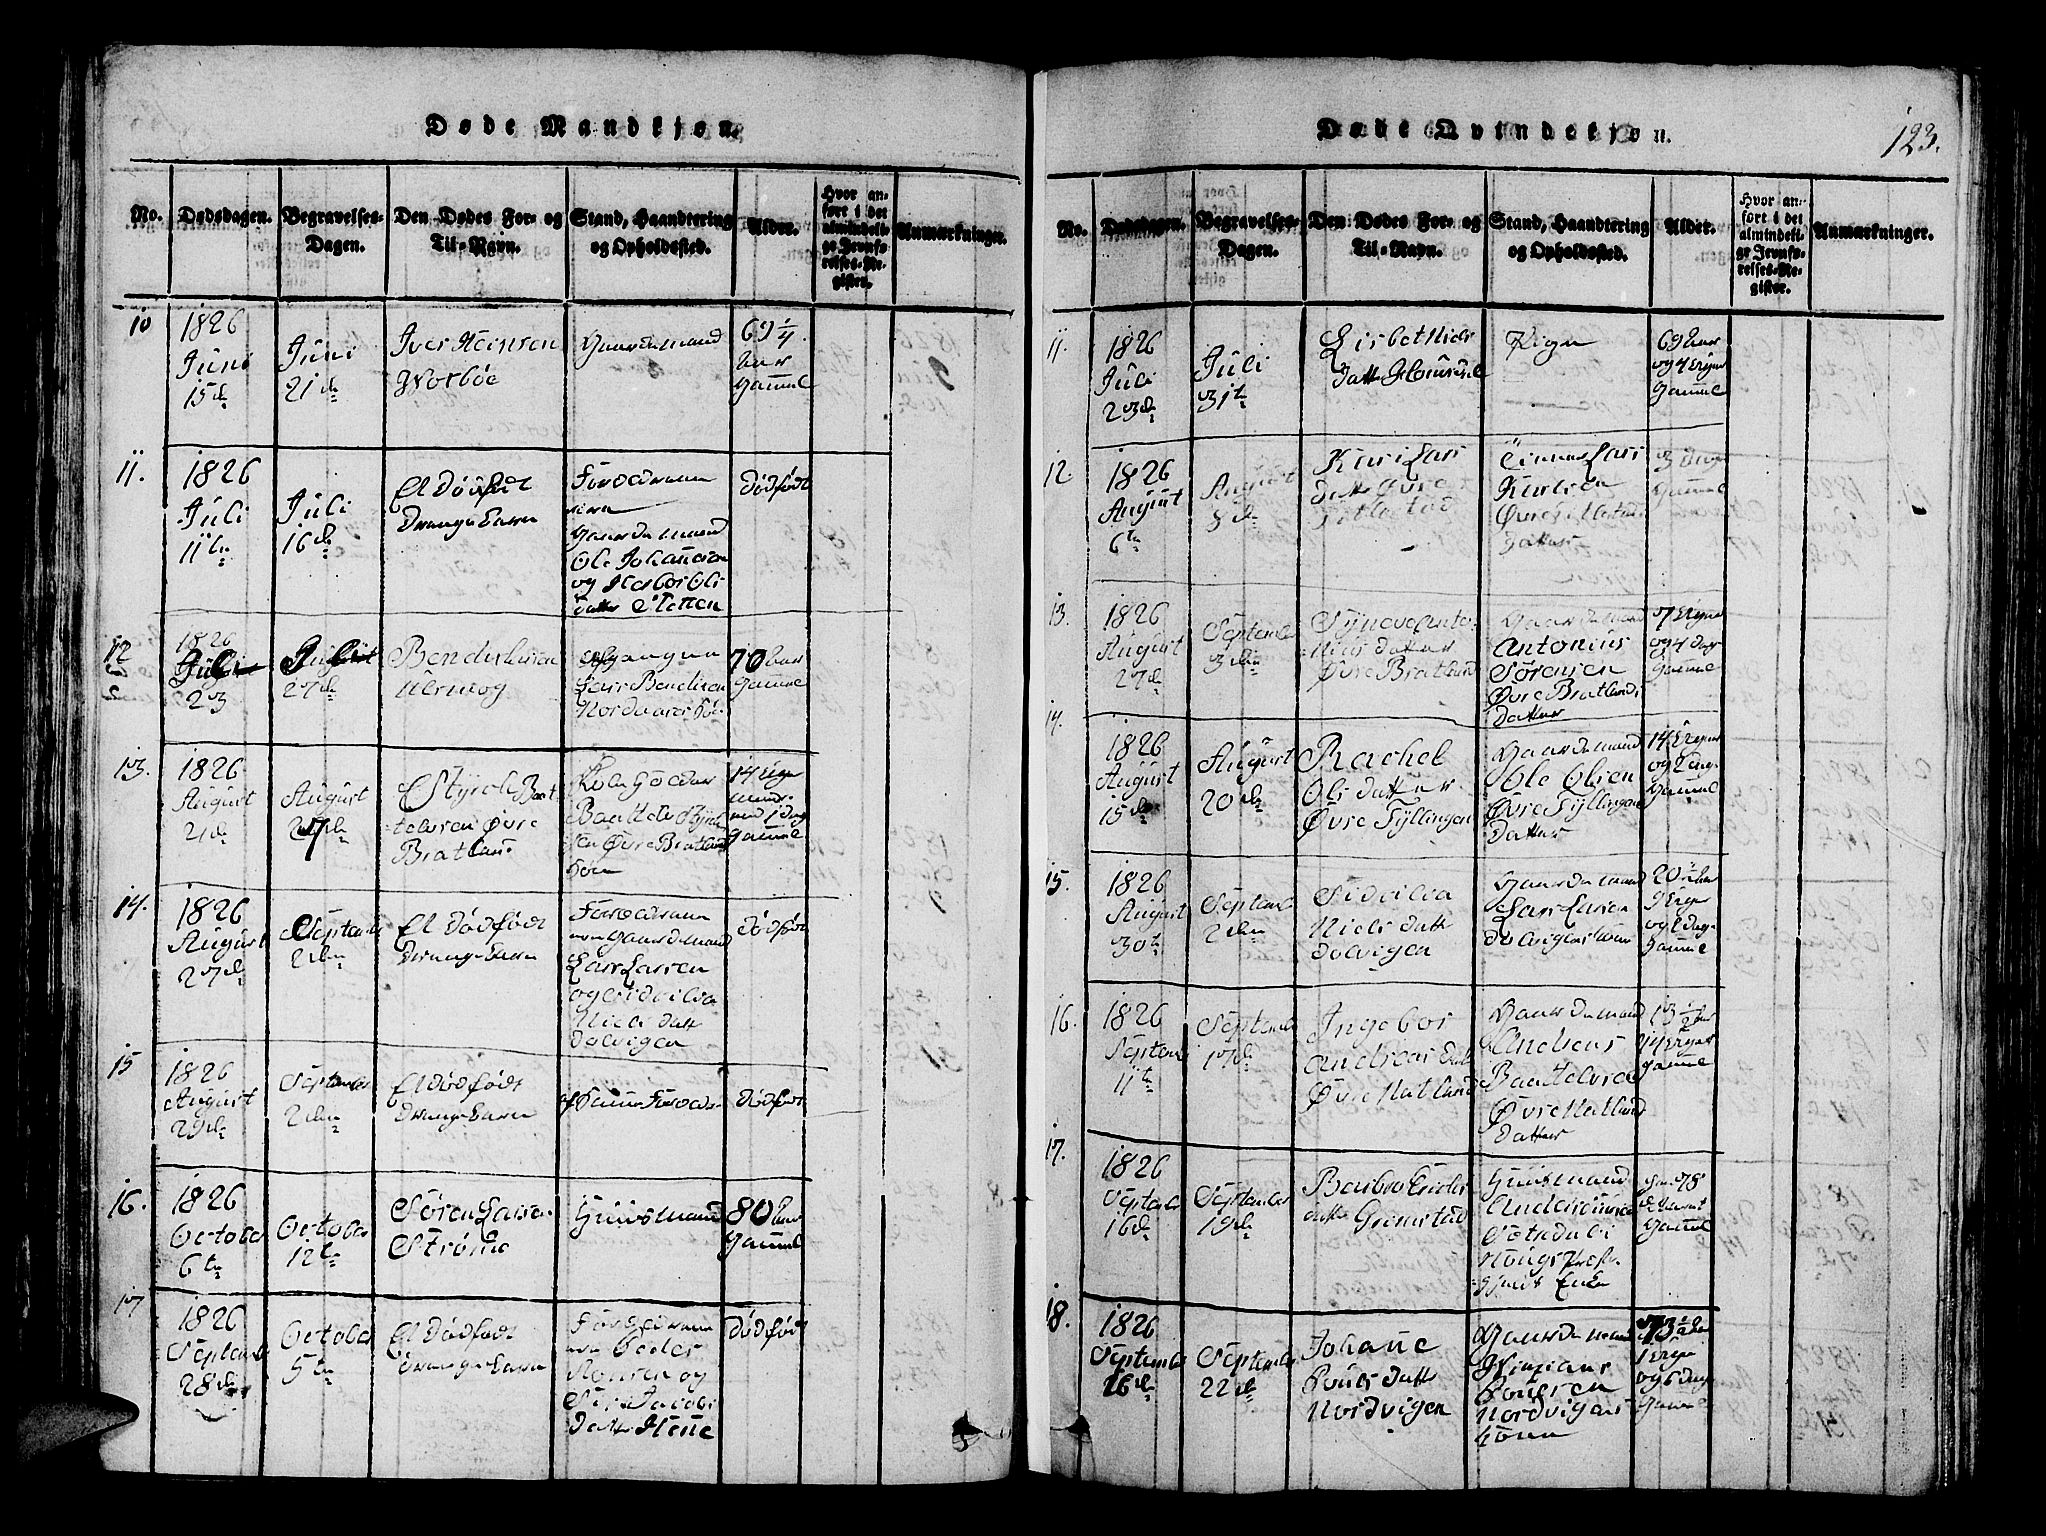 Døde Mandkjøn.
No.
Dødsdagen.
Begravelses-
Dagen.
Den Dødes For- og
Til-Navn.
Stand, Haandtering
og Opholdssted.
Alder.
Hvor an-
ført i det
almindeli-
ge Jevnfø-
relses-Re-
gister.
Anmærkninger.
10
1826
Juni
15de
Juni
21de
Iver
Gaardemand
69 1/4
Aar
Gammel
11.
1826
Juli
11te
Juli
16de
Et Dødfødt
Drenge Barn
Forældrene
ere
Gaardemand
Ole Johannesen
og
Datter
Dødfødt
12
1826
Juli
23
August
27de
Gangne
Lars Bendixen
70 Aar
Gammel
13.
1826
August
21de
August
27de
Styrck Baat
telsen Øvre
Bratland
Øvre Bratland
Søn
14
1 Dag
Gammel
14.
1826
August
27de
September
2den
Et Dødfødt
Drenge Barn
Forældrene
ere Gaardemand
Lars Larsen
og Sidsilia
Niels Datt
Dalvigen
Dødfødt
15
1826
August
29de
September
2den
Et Dødfødt
Drenge Barn
af Samme Forældre
Dødfødt
16.
1826
October
6te
October
12te
Søren Larsen
Strømo
Huusmand
80 Aar
Gammel
17
1826
Septemb
28de
October
5te
Et Dødfødt
Drenge Barn
Forældrene
ere Peder
Monsen og
Siri Jacobs
Datter
Dødfødt
Døde Qvindekjøn.
123.
No.
Dødsdagen.
Begravelses-
Dagen.
Den Dødes For- og
Til-Navn.
Stand, Haandtering
og Opholdssted.
Alder.
Hvor an-
ført i det
almindeli-
ge Jevnfø-
relses-Re-
gister.
Anmærkninger.
11.
1826
Juli
23de
Juli
31te
Lisbet Niels
Datt
Pige
69 Aar
og 4 Uger
Gammel
12.
1826
August
6te
August
8de
Kari Lars
Datter Øvre
Lars
Øvre
Datter
3 Uger
Gammel
13.
1826
August
27de
September
3den
Synove Anto-
Datter
Øvre Bratland
Gaardemand
Antonius
Sørensen
Øvre Bratlands
Datter
7 Uger
og 4 Dage
Gammel
14.
1826
August
15de
August
20de
Rachel
Ols Datter
Øvre Tyllingen
Gaardemand
Ole Olsen
Øvre Tyllingen
Datter
14 Uger
og 2 Dag.
Gammel
15.
1826
August
30te
Septemb
2den
Sidsilia
Niels Datt
Dalvigen
Gaardemand
Lars Larsen
20 Aar
9 Uger
og 2 Dag.
Gammel
16.
1826
Septemb
11te
September
17de
Ingebor
Andreas Dat
Øvre Hatland
Gaardemand
Andreas
Baattelsen
Øvre Hatland
Datter
13 1/2 Aar
14 Uger
Gammel
17.
1826
September
16de
September
19de
Barbro
Datter Grimstad
Huusmand
Enke
78
Gammel
18.
1826
September
16de
September
22de
Johanne
Povels Datt
Nordvigen
Gaardemand
Povelsen
Nordvigens
Kone
73 1/2 Aar
1 Uge
og 6 Dage
Gammel